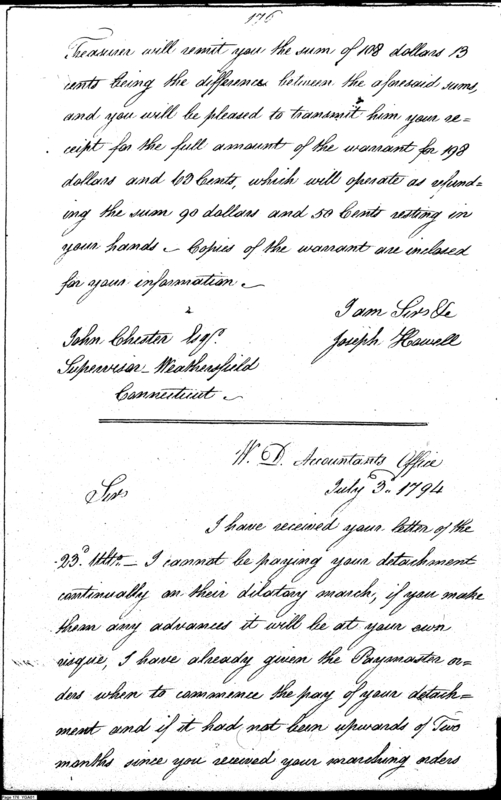 176
Treasurer will remit you the sum of 108 dollars 13
cents being the difference between the aforesaid sums,
and you will be pleased to transmit him your re=
ceipt for the full amount of the warrant for 198
dollars and 63 Cents, which will operate as refund=
ing the sum 90 dollars and 50 Cents resting in
your hands – Copies of the warrant are inclosed
for your information –
I am Sir &c
John Chester Esqr. Joseph Howell
Supervisor – Weathersfield
Connecticut –
W. D. Accountants Office
July 3d. 1794
Sir
I have received your letter of the
23d. Ulto. – I cannot be paying your detachment
continually on their dilatory march, if you make
them any advances it will be at your own
risque, I have already given the Paymaster or=
ders when to commence the pay of your detach=
ment and if it had not been upwards of Two
months since you received your marching orders